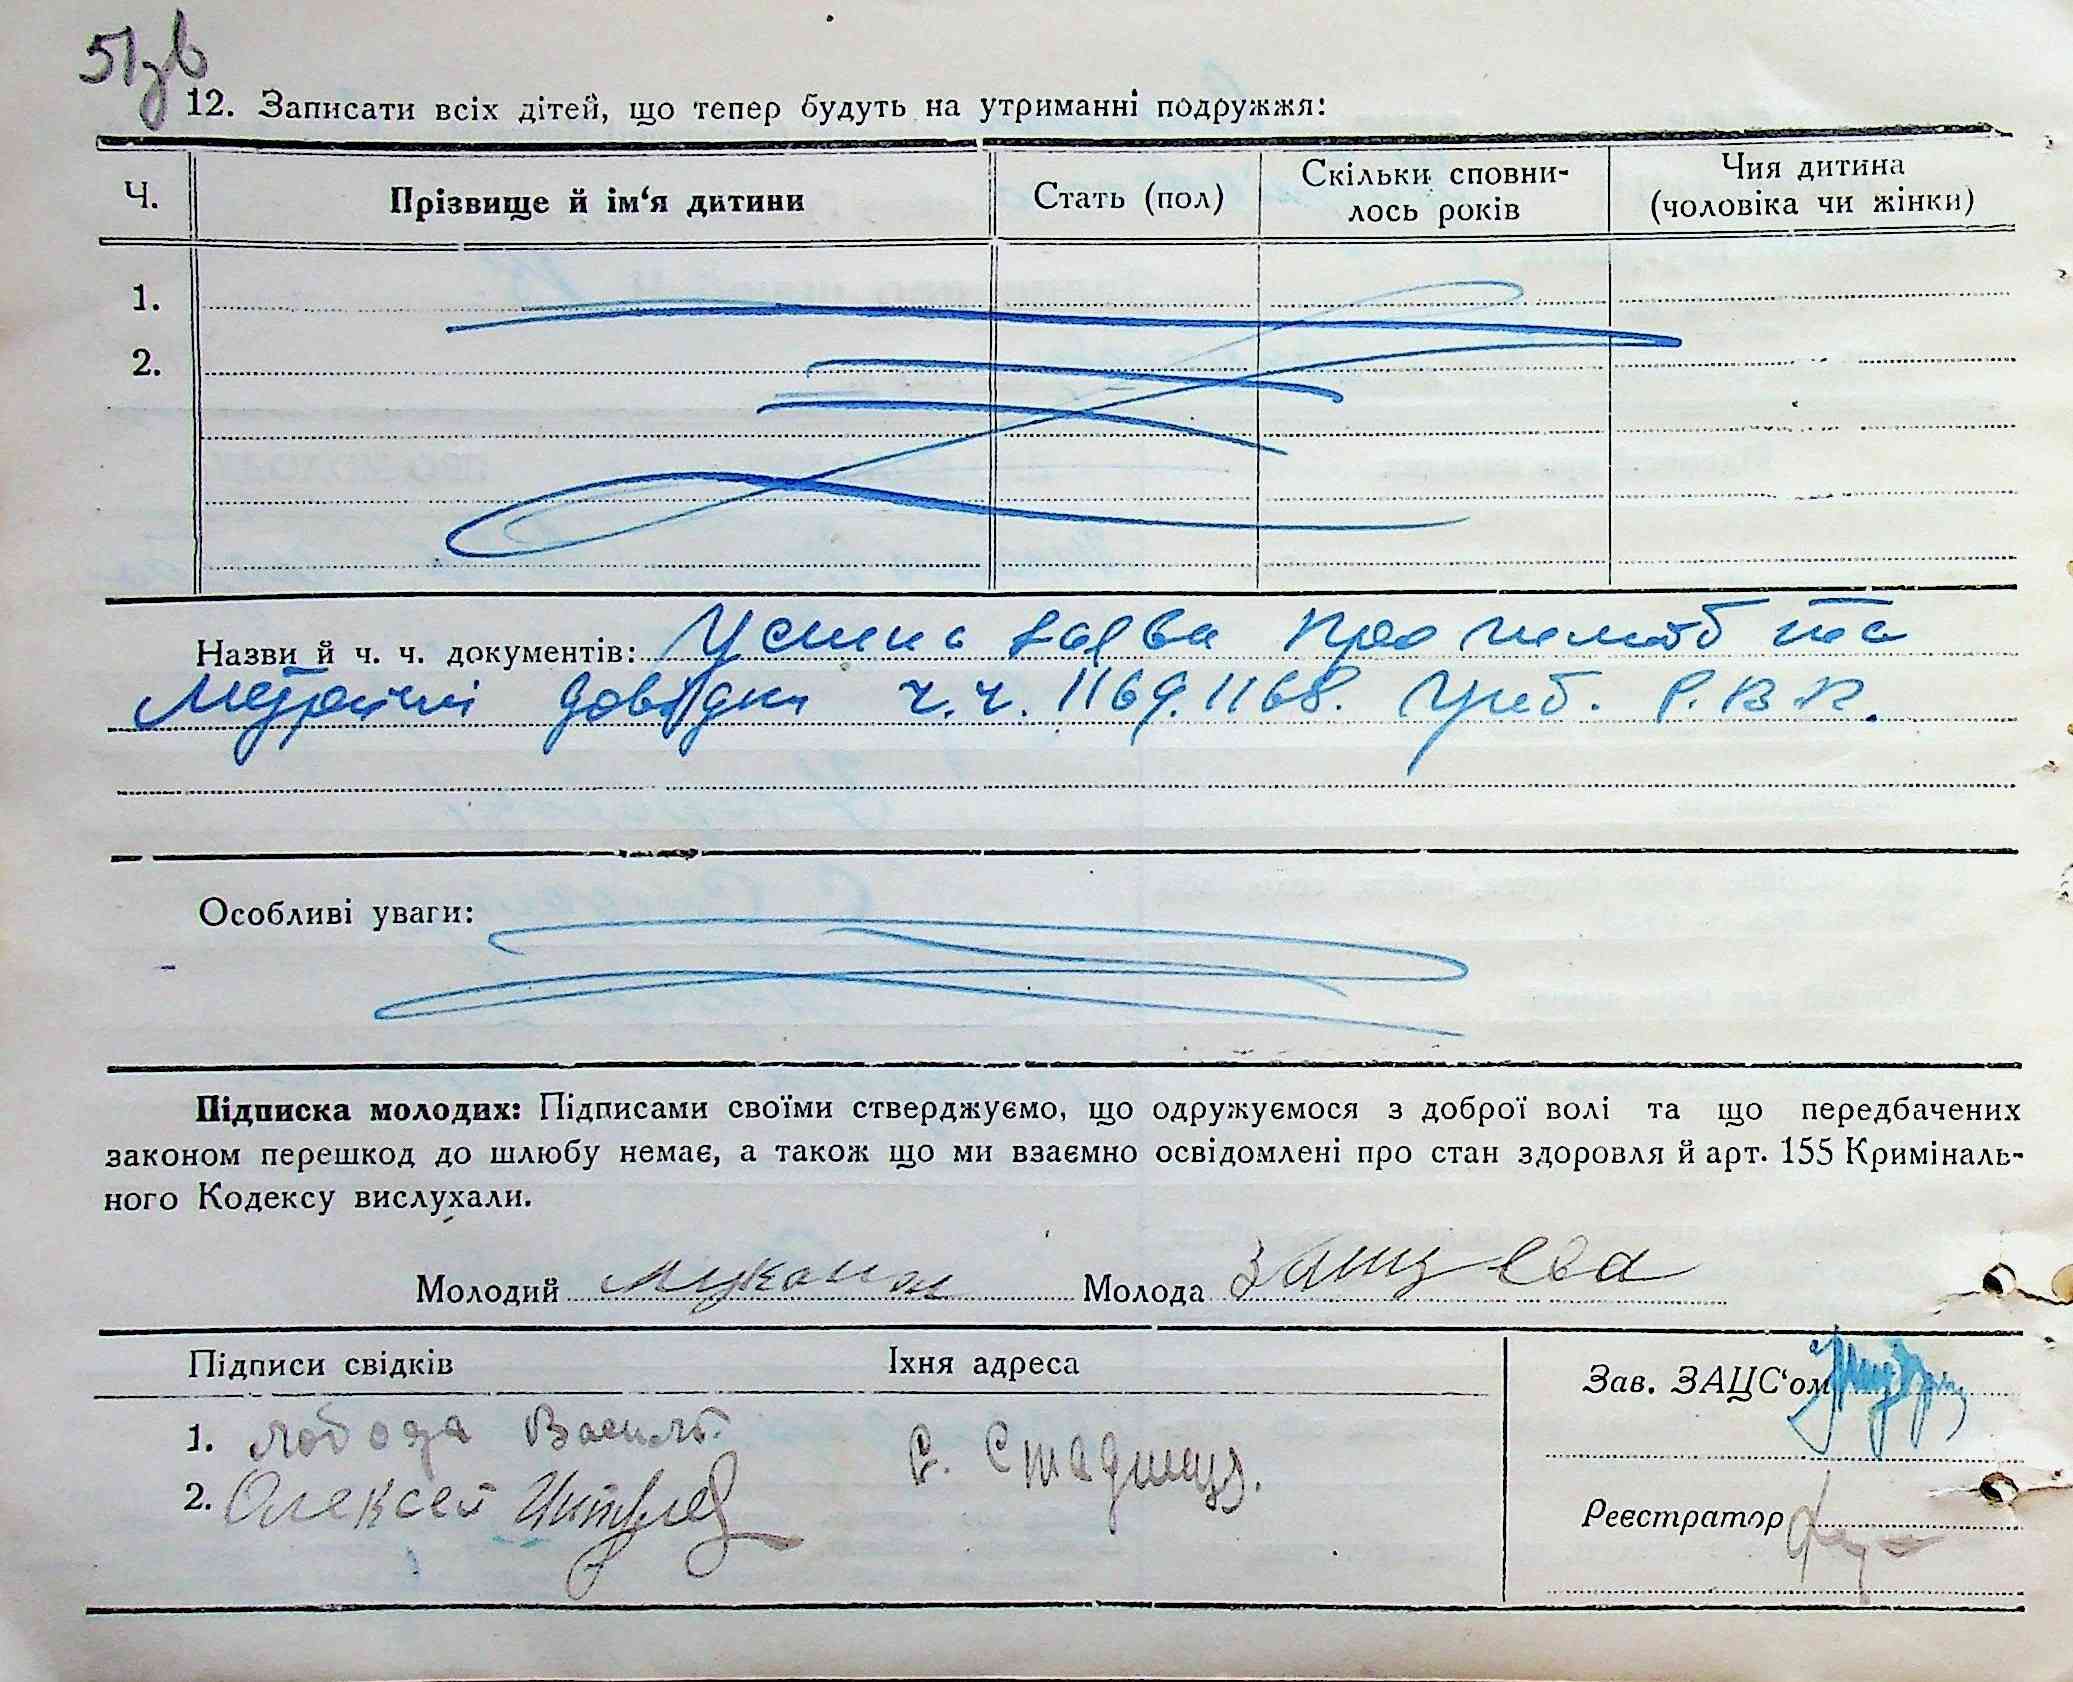 51зв
12. Записати всіх дітей, що тепер будуть на утриманні подружжя:
Ч. Прізвище й ім‘я дитини Стать (пол) Скільки сповни-лось років Чия дитина (чоловіка чи жінки)
1.
2.
Назви й ч. ч. документів: Усна заява про шлюб та
Метричні довідки ч.ч. 1169. 1168. Греб. Р.В.К.
Особливі уваги:
Підписка молодих: Підписами своїми стверджуємо, що одружуємося з доброї волі та що передбачених
законом перешкод до шлюбу немає, а також що ми взаємно освідомлені про стан здоровля й арт. 155 Криміналь-
ного Кодексу вислухали.
Молодий Молода Зайцева
Підписи свідків Їхня адреса Зав. ЗАЦС‘ом
1. Лобода Василь.
2. Олексей с. Стадниця.
Реєстратор